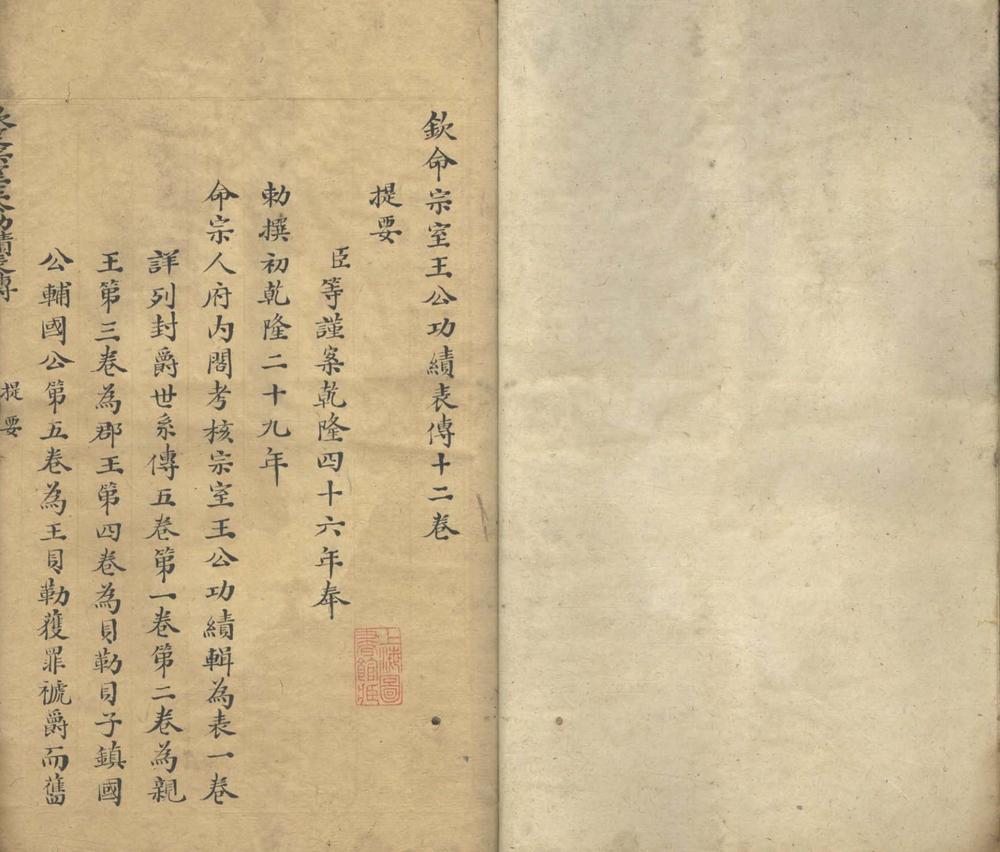 欽命宗室王公功績表傳十二卷
提要
臣等謹案乾隆四十六年奉
勅撰初乾隆二十九年
命宗人府内閣考核宗室王公功績輯為表一卷
詳列封爵世系傳五卷第一卷第二卷為親
王第三卷為郡王第四卷為貝勒貝子鎮國
公輔國公第五卷為王貝勒獲罪褫爵而舊
提要
上海圖
書館藏